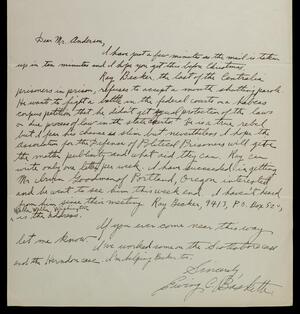 Dear Mr. Anderson,
I have just a few minutes as the mail is taken
up in ten minutes and I hope you get this before Christmas.
Ray Becker, the last of the Centralia
prisoners in prison, refuses to accept a month parole.
He wants to fight a battle in the federal courts on habeas
corpus petition that he didn't get equal protection of the laws
or due process of law in the state courts. He is a true rebel
but I fear his chances are slim but nevertheless I hope the
association for the Defense of Political Prisoners will give
the matter publicity and what aid they can. Ray can
write only one letter per week. I have succeeded in getting
Mr. Irvin Goodman of Portland, Oregon interested
and he went to see him this week end. I haven't heard
from him since this meeting. Ray Becker, 9413, P.O. Box 520
Walla Walla, Washington
is the address.
If you ever come near this way
let me know. I've worked some on the Scottsboro case
and the Herndon case. I'm helping Becker too.
Sincerely
Irving C.